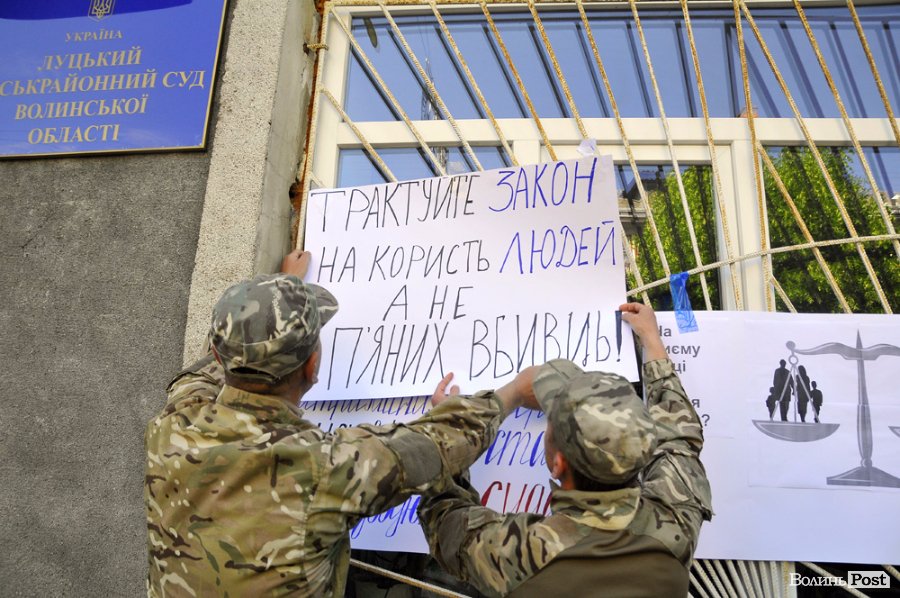 УКРАЇНА
ЛУЦЬКИЙ
СЬКРАЙОННИЙ СУД
ВОЛИНСЬКОЇ
ОБЛАСТІ
ТРАКТУЙТЕ ЗАКОН
НА КОРИСТЬ ЛЮДЕЙ
А НЕ
П'ЯНИХ ВБИВЦЬ!
На
иєму
ці
?
ВолиньPost